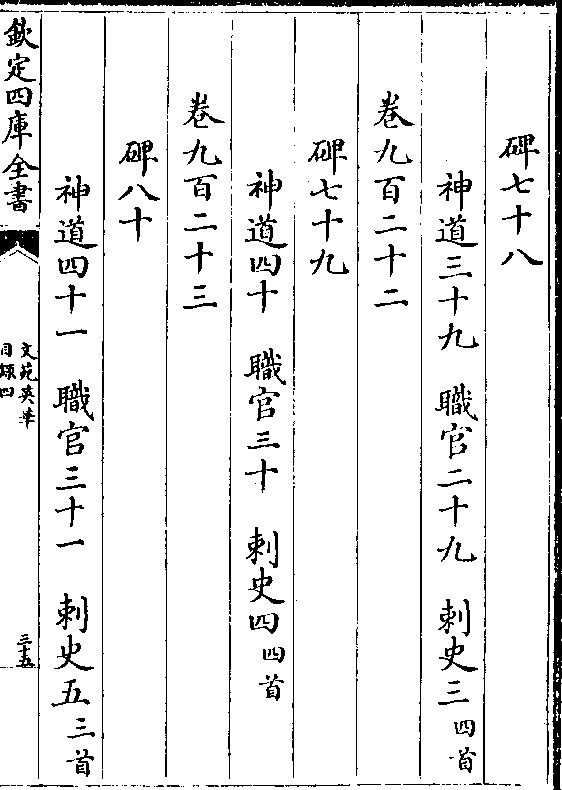 碑七十八
神道三十九　職官二十九　刺史三四首
卷九百二十二
碑七十九
神道四十　職官三十　刺史四四首
卷九百二十三
碑八十
神道四十一　職官三十一　刺史五三首
欽定四庫全書
文苑英華
目録四
三十五